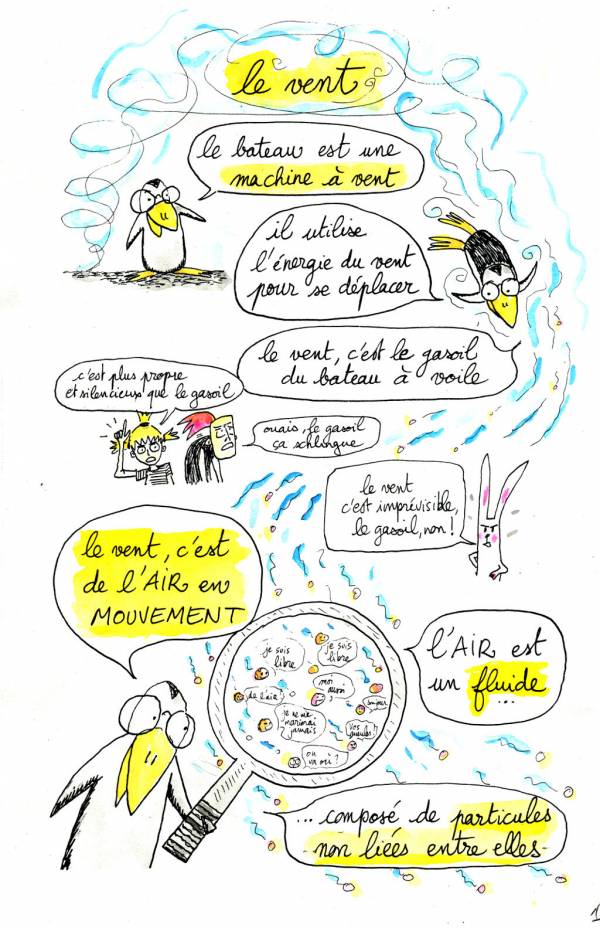 le vent
le bateau est une
machine à vent
il utilise
l'énergie du vent
pour se déplacer
le vent, c'est le gasoil
du bateau à voile
c'est plus propre
et silencieux que le gasoil
ouais, le gasoil
ça schlingue
le vent
c'est imprévisible,
le gasoil, non !
le vent, c'est
de l'AIR en
MOUVEMENT
je suis
libre
je suis
libre
moi
aussi
de l'air !
bonjour
je ne me
marierai
jamais
vos
gueules
on
va où ?
l'AIR est
un fluide
...
... composé de particules
non liées entre elles
1